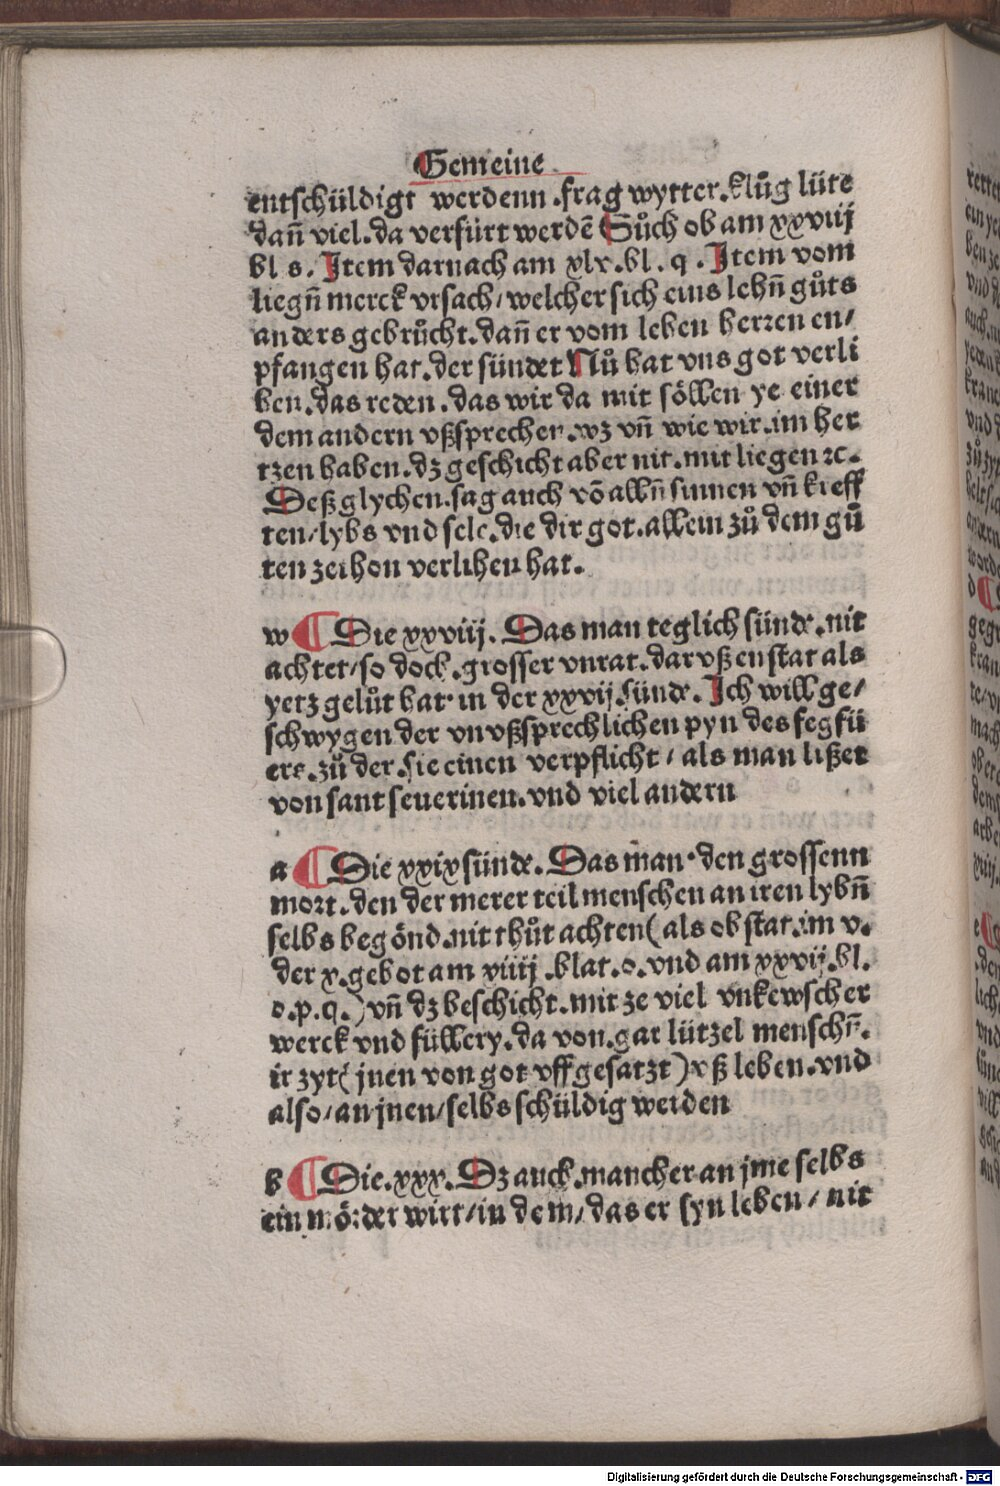 Gemeine
entschüldigt werdenn .frag wytter. klůg lüte
dañ viel. da verfürt werdē Sůch ob am xxviij
bl s. Item darnach am xlv. bl. q . Item vom
liegñ merck vrsach/ welcher sich eins lehñ gůts
anders gebrůcht. dañ er vom leben herren en/
pfangen hat. der sündet Nů hat vns got verli
ben. das reden. das wir da mit söllen ye einer
dem andern vßsprechen. wz vñ wie wir. im her
tzen haben. dz geschicht aber nit. mit liegen ꝛc.
Deßglychen. sag auch võ allñ sinnen vñ kreff
ten/ lybs vnd sele. die dir got. allein zů dem gů
ten zeihon verlihen hat.
w ¶ Die xxviij. Das man teglich sünde. nit
achtet/ so doch. grosser vnrat. dar vß enstat als
yetz gelůt hat in der xxvij. sünde. Ich will ge/
schwygen der vnvßsprechlichen pyn des fegfü
ers. zů der. sie einen verpflicht / als man lißet
von sant seuerinen. vnd viel andern
a ¶ Die xxix sünde. Das man den grossenn
mort. den der merer teil menschen an iren lybñ
selbs begönd. nit thůt achten( als ob stat. im v.
der x. gebot am xiiij .blat. o. vnd am xxvij. bl.
o. p. q. ) vñ dz beschicht. mit ze viel vnkewscher
werck vnd füllery. da von. gar lützel menschñ.
ir zyt( jnen von got vffgesatzt ) vß leben. vnd
also/ an jnen/ selbs schüldig werden
b ¶ Die. xxx. Dz auch. mancher an jme selbs
ein mörder wirt/ in dem/ das er syn leben/ nit
Digitalisierung gefördert durch die Deutsche Forschungsgemeinschaft - DFG